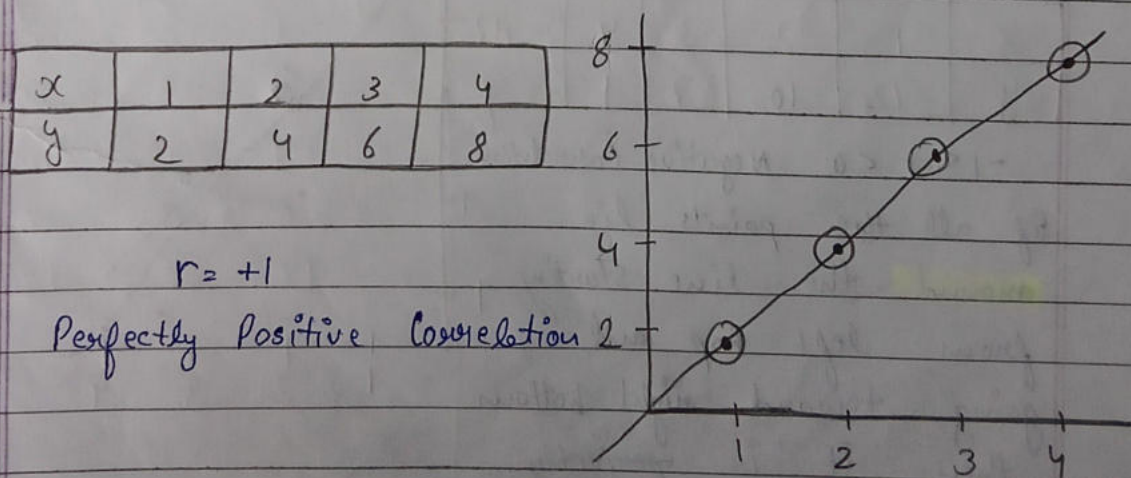 x 1 2 3 4
y 2 4 6 8
r = +1
Perfectly Positive Correlation
8
6
4
2
1 2 3 4